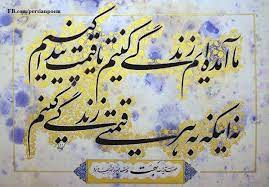 FB.com/persianpoem
ما آمده ایم زندگی کنیم تا قیمت پیدا کنیم
نه اینکه به هر قیمتی زندگی کنیم